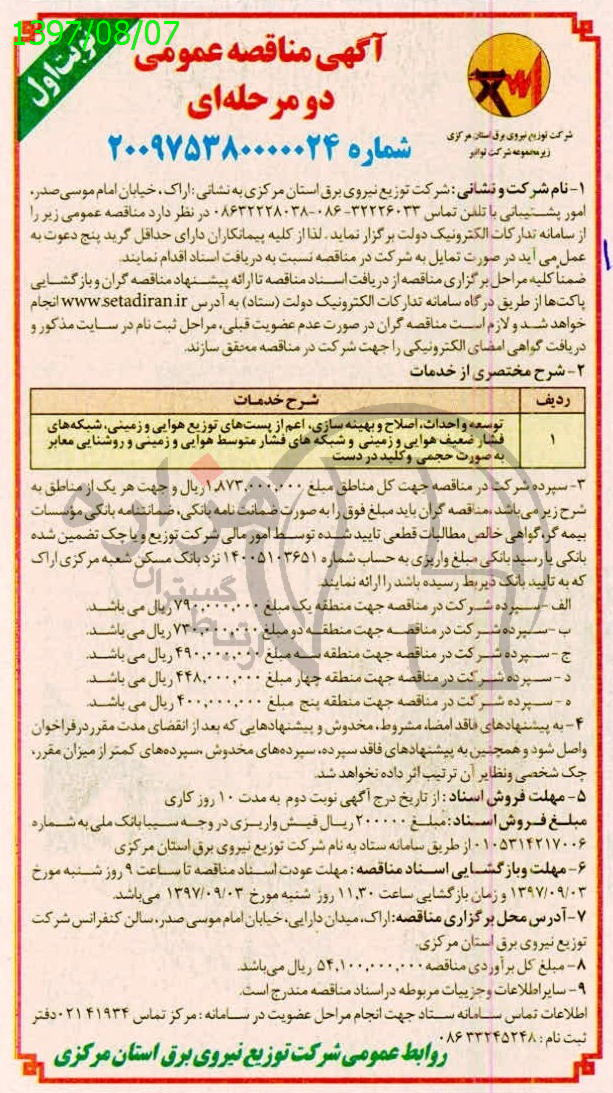 1397/08/07
نوبت اول
آگهی مناقصه عمومی
دو مرحله‌ای
شماره ۲۰۰۹۷۵۳۸۰۰۰۰۰۲۴
شرکت توزیع نیروی برق استان مرکزی
زیرمجموعه شرکت توانیر
۱- نام شرکت و نشانی: شرکت توزیع نیروی برق استان مرکزی به نشانی: اراک، خیابان امام موسی صدر،
امور پشتیبانی با تلفن تماس ۳۲۲۲۶۰۳۳-۰۸۶ -۰۸۶۳۲۲۲۸۰۳۸ در نظر دارد مناقصه عمومی زیر را
از سامانه تدارکات الکترونیک دولت برگزار نماید. لذا از کلیه پیمانکاران دارای حداقل گرید پنج دعوت به
عمل می آید در صورت تمایل به شرکت در مناقصه نسبت به دریافت اسناد اقدام نمایند.
ضمنا کلیه مراحل برگزاری مناقصه از دریافت اسناد مناقصه تا ارائه پیشنهاد مناقصه گران و بازگشایی
پاکت‌ها از طریق درگاه سامانه تدارکات الکترونیک دولت (ستاد) به آدرس www.setadiran.ir انجام
خواهد شد و لازم است مناقصه گران در صورت عدم عضویت قبلی، مراحل ثبت نام در سایت مذکور و
دریافت گواهی امضای الکترونیکی را جهت شرکت در مناقصه محقق سازند.
۲- شرح مختصری از خدمات
ردیف شرح خدمات
۱ توسعه و احداث، اصلاح و بهینه سازی، اعم از پست‌های توزیع هوایی و زمینی، شبکه‌های
فشار ضعیف هوایی و زمینی و شبکه های فشار متوسط هوایی و زمینی و روشنایی معابر
به صورت حجمی و کلید در دست
۳- سپرده شرکت در مناقصه جهت کل مناطق مبلغ ۱،۸۷۳،۰۰۰،۰۰۰ ریال و جهت هر یک از مناطق به
شرح زیر می‌باشد، مناقصه گران باید مبلغ فوق را به صورت ضمانت نامه بانکی، ضمانتنامه بانکی مؤسسات
بیمه گر، گواهی خالص مطالبات قطعی تایید شده توسط امور مالی شرکت توزیع و یا چک تضمین شده
بانکی یا رسید بانکی مبلغ واریزی به حساب شماره ۱۴۰۰۵۱۰۳۶۵۱ نزد بانک مسکن شعبه مرکزی اراک
که به تایید بانک ذیربط رسیده باشد را ارائه نمایند.
الف - سپرده شرکت در مناقصه جهت منطقه یک مبلغ ۷۹۰،۰۰۰،۰۰۰ ریال می باشد.
ب - سپرده شرکت در مناقصه جهت منطقه دو مبلغ ریال می باشد.
ج - سپرده شرکت در مناقصه جهت منطقه سه مبلغ ۴۹۰،۰۰۰،۰۰۰ ریال می باشد.
د - سپرده شرکت در مناقصه جهت منطقه چهار مبلغ ۴۴۸،۰۰۰،۰۰۰ ریال می باشد.
ه - سپرده شرکت در مناقصه جهت منطقه پنج مبلغ ۴۰۰،۰۰۰،۰۰۰ ریال می باشد.
۴- به پیشنهادهای فاقد امضا، مشروط، مخدوش و پیشنهادهایی که بعد از انقضای مدت مقرر در فراخوان
واصل شود و همچنین به پیشنهادهای فاقد سپرده، سپرده‌های مخدوش، سپرده‌های کمتر از میزان مقرر،
چک شخصی و نظایر آن ترتیب اثر داده نخواهد شد.
۵- مهلت فروش اسناد: از تاریخ درج آگهی نوبت دوم به مدت ۱۰ روز کاری
مبلغ فروش اسناد: مبلغ ۲۰۰۰۰۰ ریال فیش واریزی در وجه سیبا بانک ملی به شماره
۰۱۰۵۳۱۴۲۱۷۰۰۶ از طریق سامانه ستاد به نام شرکت توزیع نیروی برق استان مرکزی
۶- مهلت و بازگشایی اسناد مناقصه: مهلت عودت اسناد مناقصه تا ساعت ۹ روز شنبه مورخ
۱۳۹۷/۰۹/۰۳ و زمان بازگشایی ساعت ۱۱،۳۰ روز شنبه مورخ ۱۳۹۷/۰۹/۰۳ می‌باشد.
۷- آدرس محل برگزاری مناقصه: اراک، میدان دارایی، خیابان امام موسی صدر، سالن کنفرانس شرکت
توزیع نیروی برق استان مرکزی.
۸- مبلغ کل برآوردی مناقصه ۵۴،۱۰۰،۰۰۰،۰۰۰ ریال می‌باشد.
۹- سایر اطلاعات و جزییات مربوطه در اسناد مناقصه مندرج است.
اطلاعات تماس سامانه ستاد جهت انجام مراحل عضویت در سامانه: مرکز تماس ۴۱۹۳۴-۰۲۱ دفتر
ثبت نام: ۳۳۲۴۵۲۴۸-۰۸۶
روابط عمومی شرکت توزیع نیروی برق استان مرکزی